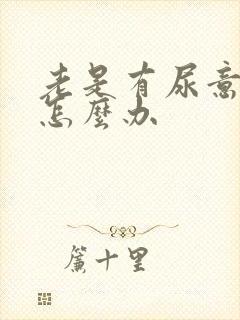 老是有尿意
怎麼办
簾十里